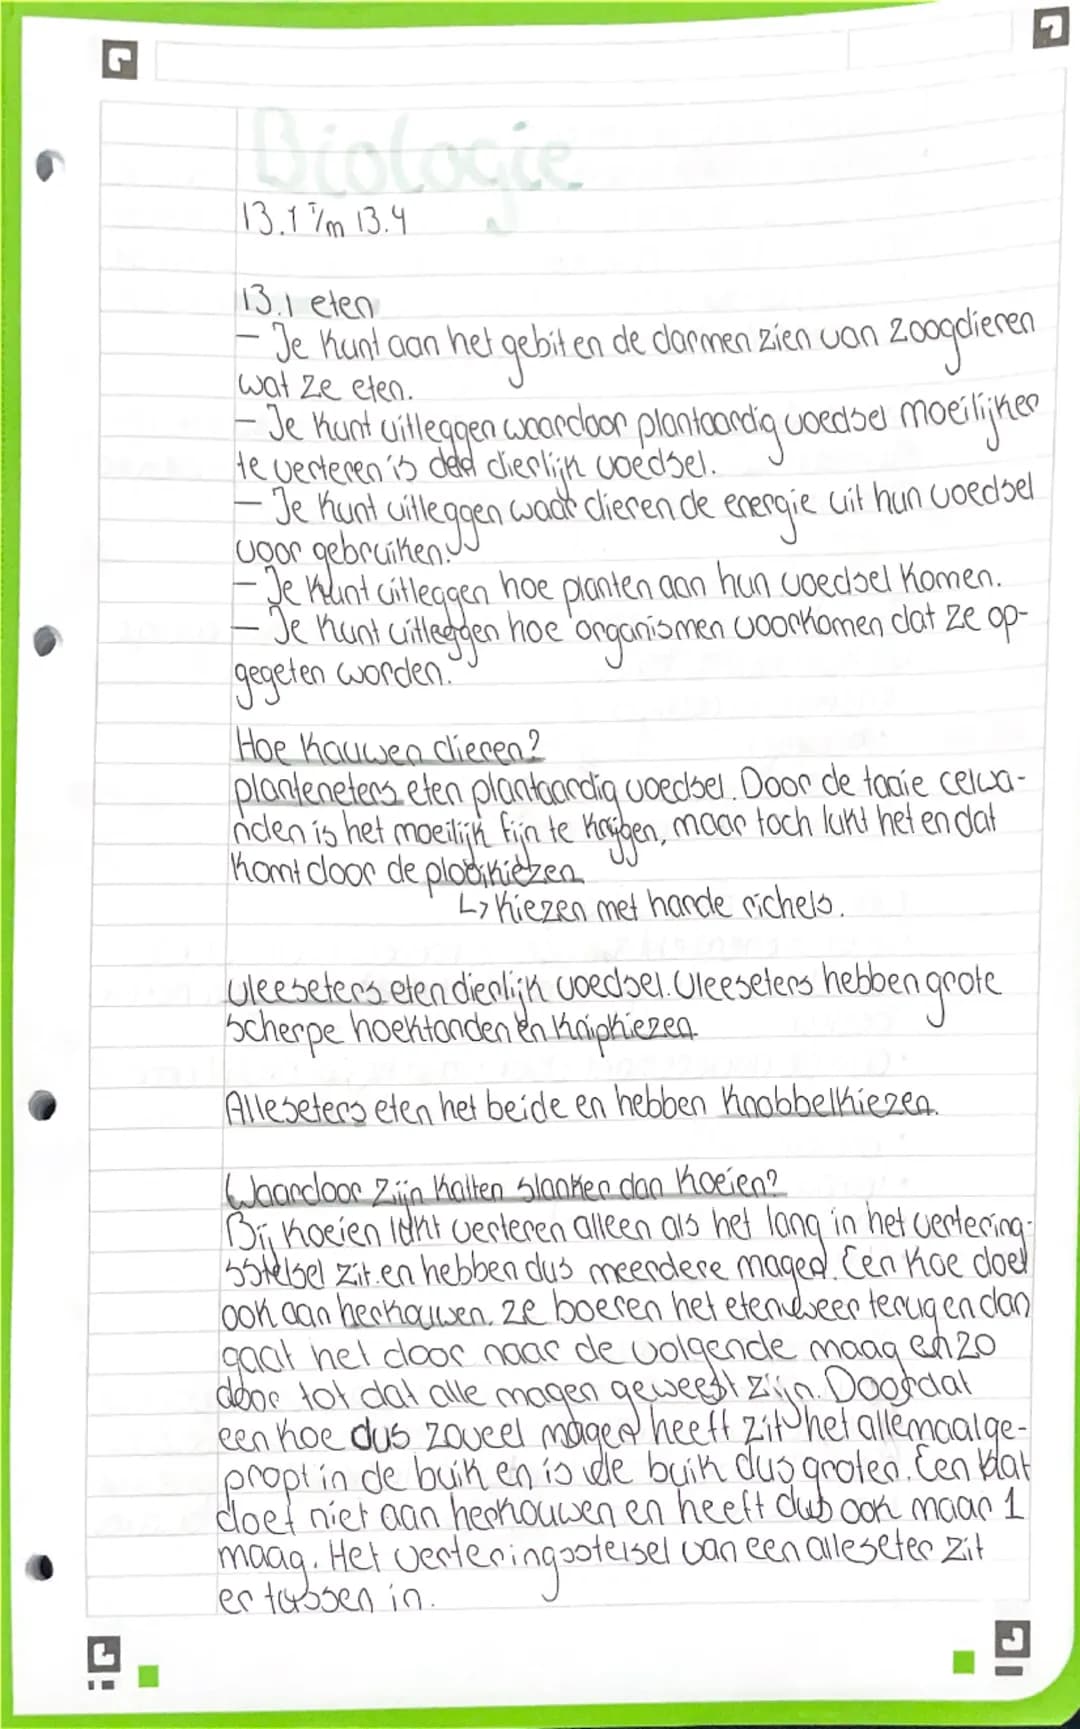 Biologie
13.1 t/m 13.4
13.1 eten
- Je kunt aan het gebit en de darmen zien van zoogdieren
wat ze eten.
- Je kunt uitleggen waardoor plantaardig voedsel moeilijker
te verteren is dan dierlijk voedsel.
- Je kunt uitleggen waar dieren de energie uit hun voedsel
voor gebruiken.
- Je kunt uitleggen hoe planten aan hun voedsel komen.
- Je kunt uitleggen hoe organismen voorkomen dat ze op-
gegeten worden.
Hoe kauwen dieren?
planteneters eten plantaardig voedsel. Door de taaie celwa-
nden is het moeilijk fijn te krijgen, maar toch lukt het en dat
komt door de plooikiezen
↳ kiezen met harde richels.
vleeseters eten dierlijk voedsel. vleeseters hebben grote
scherpe hoektanden en knipkiezen
Alleseters eten het beide en hebben knobbelkiezen.
Waardoor zijn katten slanker dan koeien?
Bij koeien lukt verteren alleen als het lang in het vertering-
sstelsel zit. en hebben dus meerdere magen. Een koe doet
ook aan herkauwen. ze boeren het eten weer terug en dan
gaat het door naar de volgende maag en zo
door tot dat alle magen geweest zijn. Doordat
een koe dus zoveel magen heeft zit het allemaal ge-
propt in de buik en is de buik dus groter. Een kat
doet niet aan herkouwen en heeft dus ook maar 1
maag. Het verteringsstelsel van een alleseter zit
er tussen in.